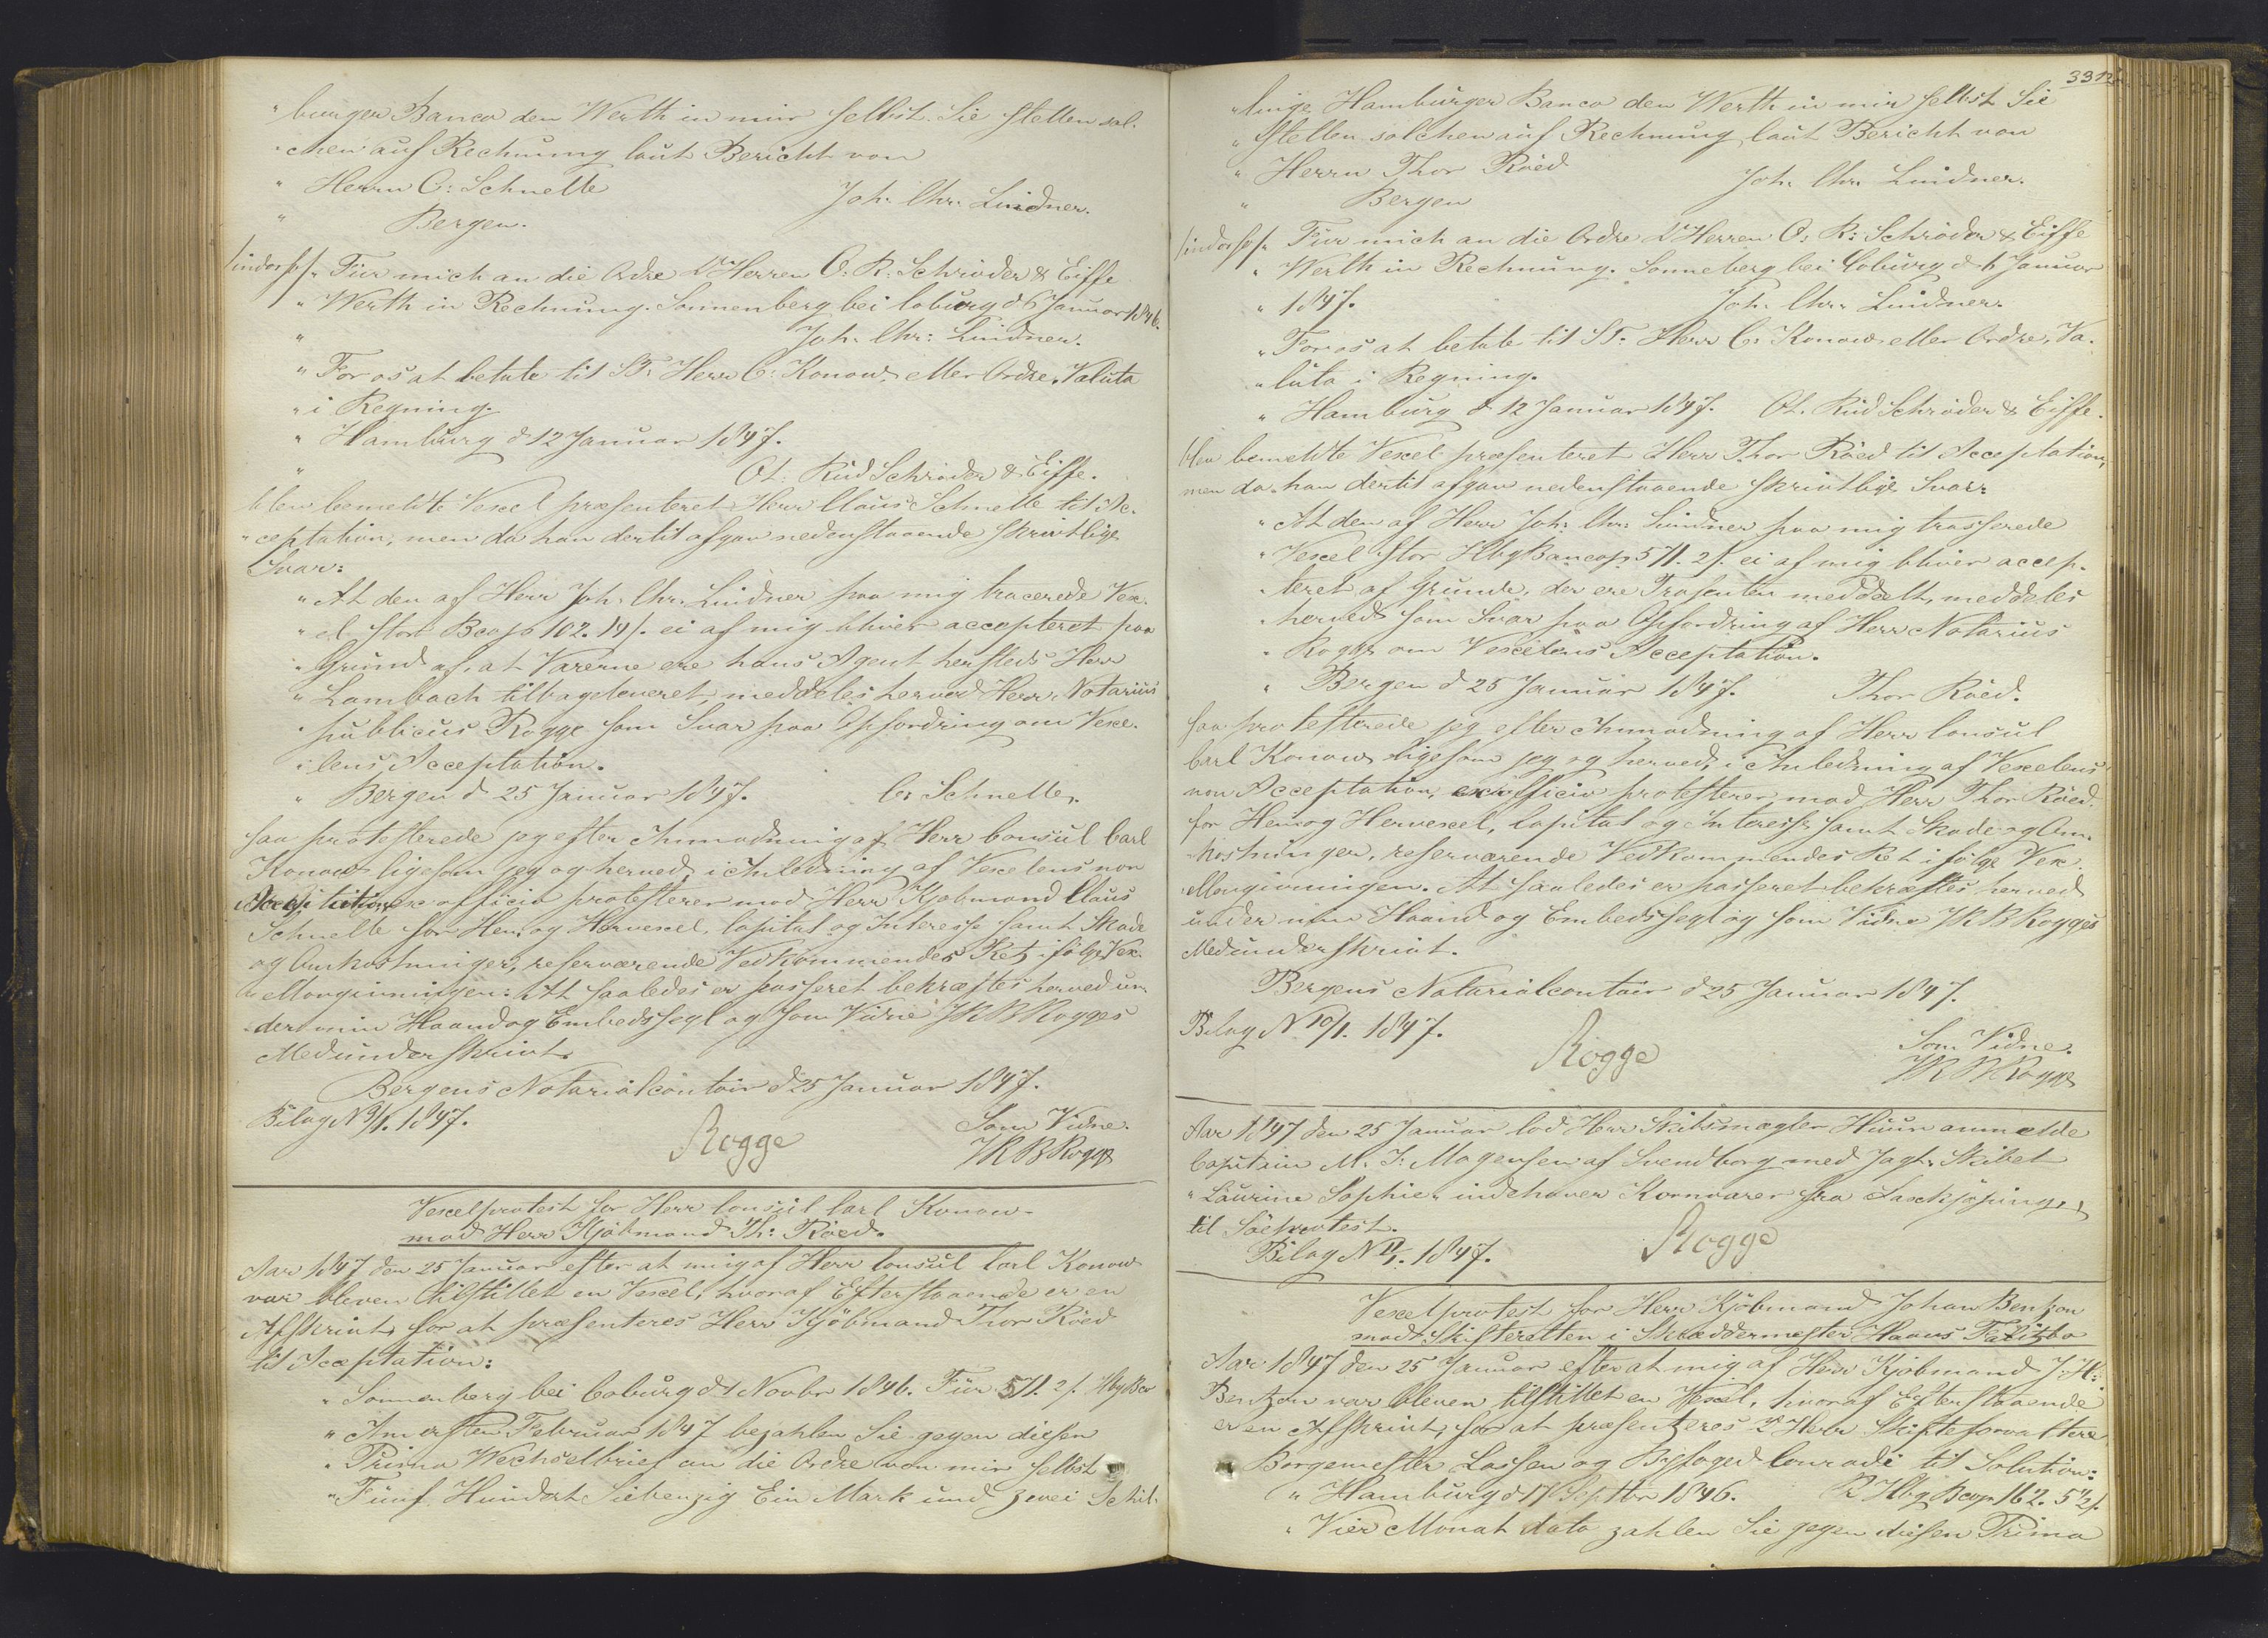 " burger Banco den Werth in mir selbst. Sie stellen sol-
" chen auf Rechnung laut Bericht von
" Herrn C: Schnelle Joh. Chr. Lindner.
" Bergen.
/indors:/ " Für mich an die Ordre d Herren O. R. Schröder & Eiffe
" Werth in Rechnung. Sonnenberg bei Coburg d 6 Januar 1846.
" Joh. Chr: Lindner.
" For os at betale til ST. Herr C: Konow, eller Ordre, Valuta
" i Regning.
" Hamburg d 12 Januar 1847.
" Ot: Rud Schröder & Eiffe.
blev bemeldte Vexel præsenteret Herr Claus Schnelle til Ac-
" ceptation, men da han dertil afgav nedenstaaende skrivtlige
Svar:
" At den af Herr Joh. Chr. Lindner paa mig tracerede Vex-
" el stor Bco 102. 14 ei af mig bliver accepteret paa
" Grund af, at Varerne ere hans Agent hersteds Herr
" Lambach tilbageleveret, meddeles herved Herr Notarius
" publicus Rogge som Svar paa Opfordring om Vexe-
" lens Acceptation.
" Bergen d 25 Januar 1847. C: Schnelle.
saa protesterede jeg efter Anmodning af Herr Consul Carl
Konow ligesom jeg og herved, i Anledning af Vexelens non
Acceptation ex officio protesterer mod Herr Kjøbmand Claus
Schnelle for Hen og Hervexel, Capital og Interesse samt Skade
og Omkostninger, reserverende Vedkommendes Ret ifølge Vex-
ellovgivningen: At saaledes er passeret bekræftes herved un-
der min Haand og Embedssegl og som Vidne JRB Rogges
Medunderskrivt.
Bergens Notarialcontoir d 25 Januar 1847.
Bilag N 9/1. 1847. Som Vidne.
Rogge JRB Rogge
Vexelprotest for Herr Consul Carl Konow-
mod Herr Kjøbmand Th: Röed.
Aar 1847 den 25 Januar efter at mig af Herr Consul Carl Konow
var bleven tilstillet en Vexel, hvoraf Efterstaaende er en
Afskrivt, for at præsenteres Herr Kjöbmand Thor Röed
til Acceptation:
" Sonnenberg bei Coburg d 1 Novbr 1846. Für 571. 2/. Hbg Bco
" Am ersten Februar 1847 bezahlen Sie gegen diesen
" Prima Wechselbrief an die Ordre von mir selbst
" Fünf Hundert Siebenzig Ein Mark und zwei Schil-
331
" linge Hamburger Banco den Werth in mir selbst Sie
" stellen solchen auf Rechnung laut Bericht von
" Herrn Thor Röed Joh. Chr. Lindner.
" Bergen
/indors:/ Für mich an die Ordre d Herren O. R: Schröder & Eiffe
" Werth in Rechnung. Sonneberg bei Coburg d 6 Januar
" 1847. Joh. Chr. Lindner.
" For os at betale til ST. Herr C: Konow eller Ordre, Va-
" luta i Regning.
" Hamburg d 12 Januar 1847. Ot. Rud Schröder & Eiffe.
blev bemeldte Vexel præsenteret Herr Thor Röed til Acceptation,
men da han dertil afgav nedenstaaende skrivtlige Svar:
" At den af Herr Joh: Chr: Lindner paa mig trasserede
" Vexel stor Hbg Banco 571. 2/. ei af mig bliver accep-
" teret af Grunde, der ere Trasenten meddeelt, meddeles
" herved som Svar paa Opfordring af Herr Notarius
" Rogge om Vexelens Acceptation.
" Bergen d 25 Januar 1847. Thor Röed.
saa protesterede jeg efter Anmodning af Herr Consul
Carl Konow ligesom jeg og herved, i Anledning af Vexelens
non Acceptation, ex officio protesterer mod Herr Thor Röed.
for Hen og Hervexel, Capital og Interesse samt Skade og Om-
kostninger, reserverende Vedkommendes Ret ifølge Vex-
ellovgivningen. At saaledes er passeret bekræftes herved
under min Haand og Embedssegl og som Vidne JRB Rogges
Medunderskrivt.
Bergens Notarialcontoir d 25 Januar 1847.
Bilag N 10/1. 1847. Som Vidne.
Rogge JRB Rogge
Aar 1847 den 25 Januar lod Herr Skibsmægler Huun anmelde
Capitain M. J: Mogensen af Svendborg med Jagt-Skibet
" Laurine Sophie " indehaver Kornvarer fra Saxkjøping,
til Söeprotest.
Bilag N 11/1. 1847. Rogge
Vexelprotest for Herr Kjöbmand Johan Bentzon
modt Skifteretten i Skræddermester Haavs Falitbo
Aar 1847 den 25 Januar efter at mig af Herr Kjöbmand J. H:
Bentzon var bleven tilstillet en Vexel, hvoraf Efterstaaende
er en Afskrivt, for at præsenteres d Herrr Skifteforvaltere
Borgemester Lassen og Byfoged Conradi til Solution:
" Hamburg d 17 Septbr 1846. Hbg Bco 162. 5 1/2/.
" Vier Monat dato zahlen Sie gegen diesen Prima